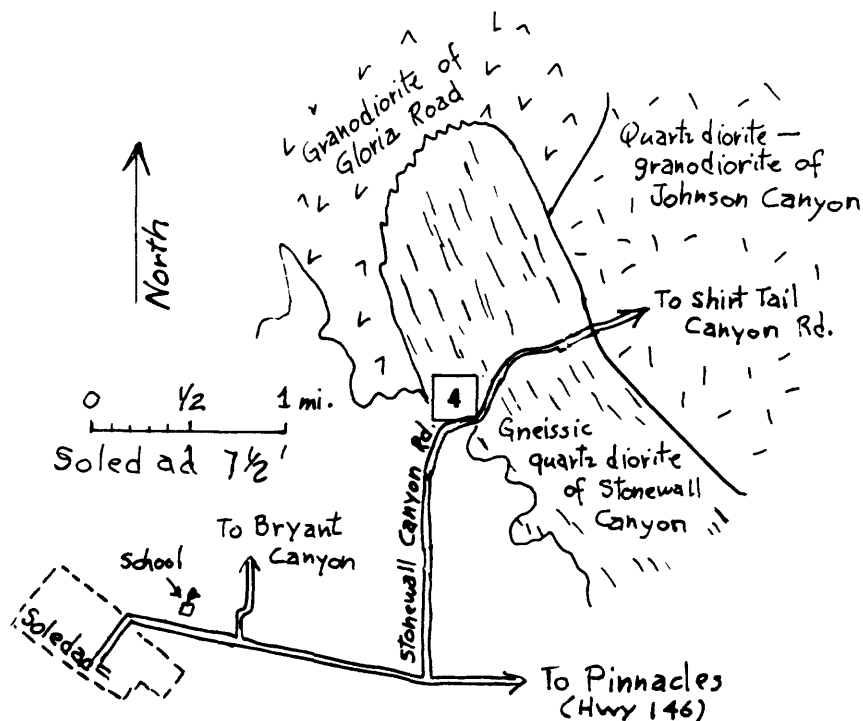 Granodiorite of
Gloria Road
Quartz diorite —
granodiorite of
Johnson Canyon
North
To Shirt Tail
Canyon Rd.
0 1/2 1 mi.
Soledad 7 1/2'
4
Gneissic
quartz diorite
of Stonewall
Canyon
Stonewall Canyon Rd.
To Bryant
Canyon
School
Soledad
To Pinnacles
(Hwy 146)